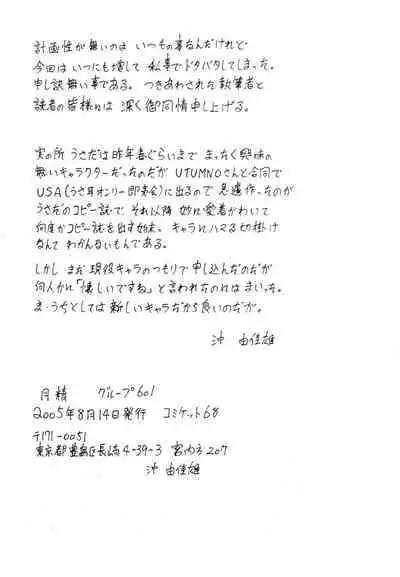 計画性が無いのは いつもの事なんだけれど
今回は いつにも増して 私事でドタバタしてしまった。
申し訳無い事である。つきあわされた執筆者と
読者の皆様には 深く御同情申し上げる。
実の所 うさだは昨年春ぐらいまで まったく興味の
無いキャラクターだったのだが UTUMNOさんと合同で
USA(うさ耳オンリー即売会)に出るので 急遽作ったのが
うさだのコピー誌で、それ以降 妙に愛着がわいて
何度かコピー誌を出す始末。 キャラにハマる切掛け
なんて わかんないもんである。
しかし まだ 現役キャラのつもりで申し込んだのだが
何人かに「懐しいですね」と言われたのには まいった。
ま、うちとしては 新しいキャラだから良いのだが。
沖 由佳雄
月精 グループ601
2005年8月14日発行 コミケット68
〒171-0051
東京都豊島区長崎4-39-3 207
沖 由佳雄